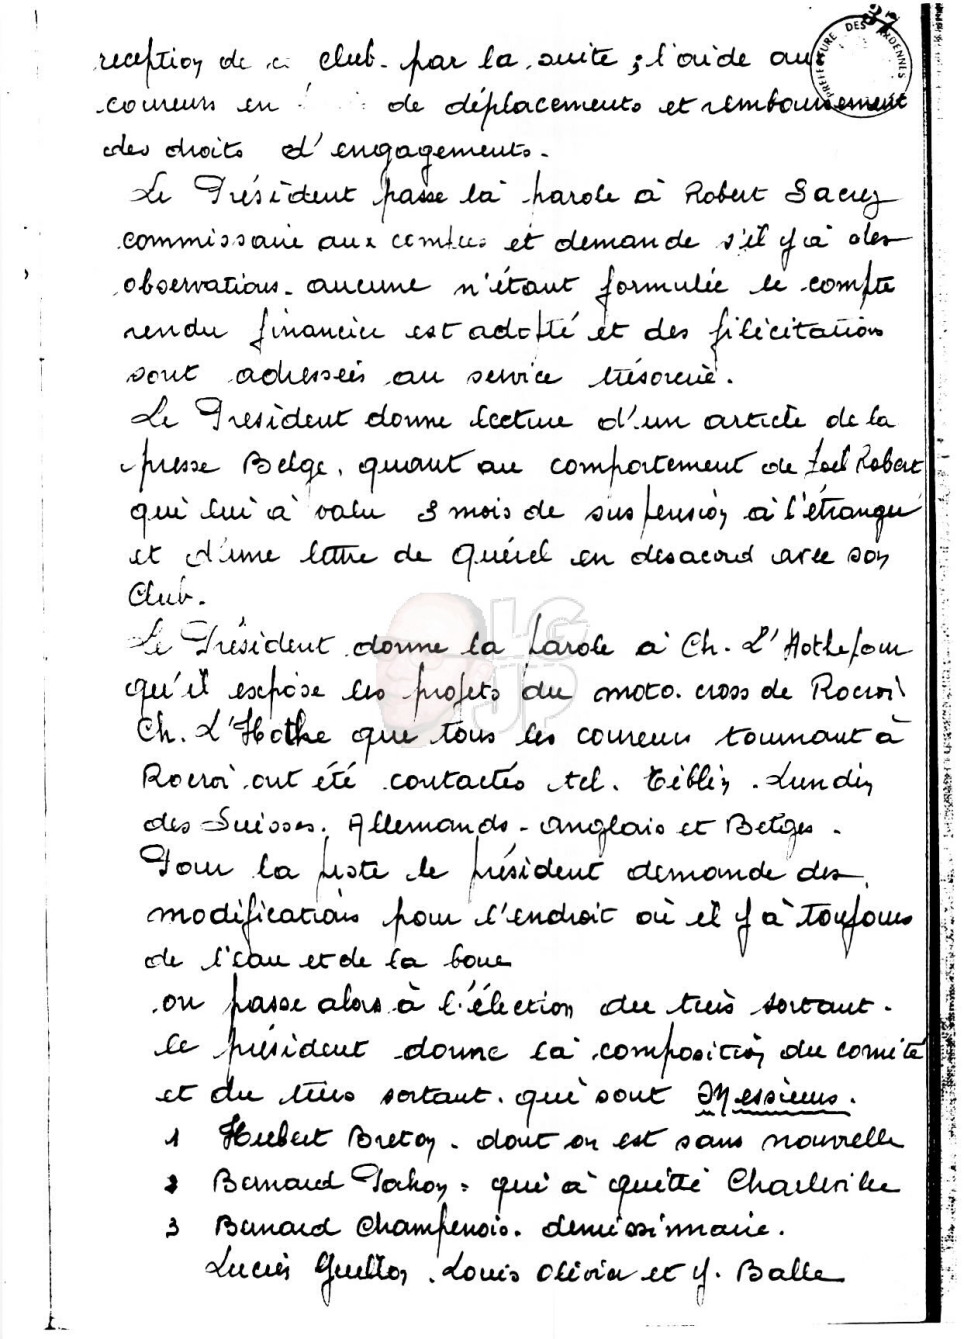 37
PRÉFECTURE DES ARDENNES
reception de club. par la suite ; l'aide aux
coureurs en de déplacements et remboursement
des droits d'engagements.
Le Président passe là parole à Robert Sacrez
commissaire aux comptes et demande s'il y à des
observations. aucune n'étant formulée le compte
rendu financier est adopté et des filicitations
sont adressées au service trésorerie.
Le Président donne lecture d'un article de la
presse Belge, quant au comportement de Joel Robert
qui lui à valu 3 mois de suspension à l'étranger
et d'une lettre de Quérel en desacord avec son
Club.
Le Président donne la parole à Ch. L'Hothe pour
qu'il expose les projets du moto. cross de Rocroi
Ch. L'Hothe que tous les coureurs tournant à
Rocroi ont été contactés tel. Tiblin. Lundin
des Suisses. Allemands - anglais et Belges.
Pour la piste le président demande des
modifications pour l'endroit où il y à toujours
de l'eau et de la boue
on passe alors à l'élection du tiers sortant.
le président donne là composition du comité
et du tiers sortant. qui sont Messieurs.
1 Hubert Breton. dont on est sans nouvelle
2 Bernard Pahon. qui à quitté Charleville
3 Bernard Champenois. demissionnaire.
Lucien Guillon. Louis Olivier et Y. Balle
LG
JP